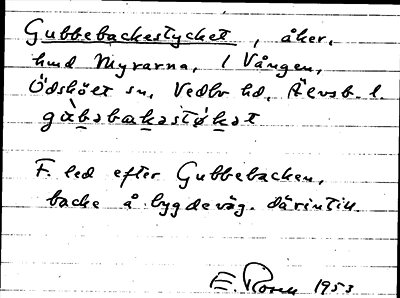 Gubbebackestycket, åker,
hmd Myrarna, 1 Vången,
Ödskölt sn, Vedbo hd, Älvsb. l.
gàbəbakəstøkət
F. led efter Gubbebacken,
backe å bygdeväg därintill.
E. Rosell 1953